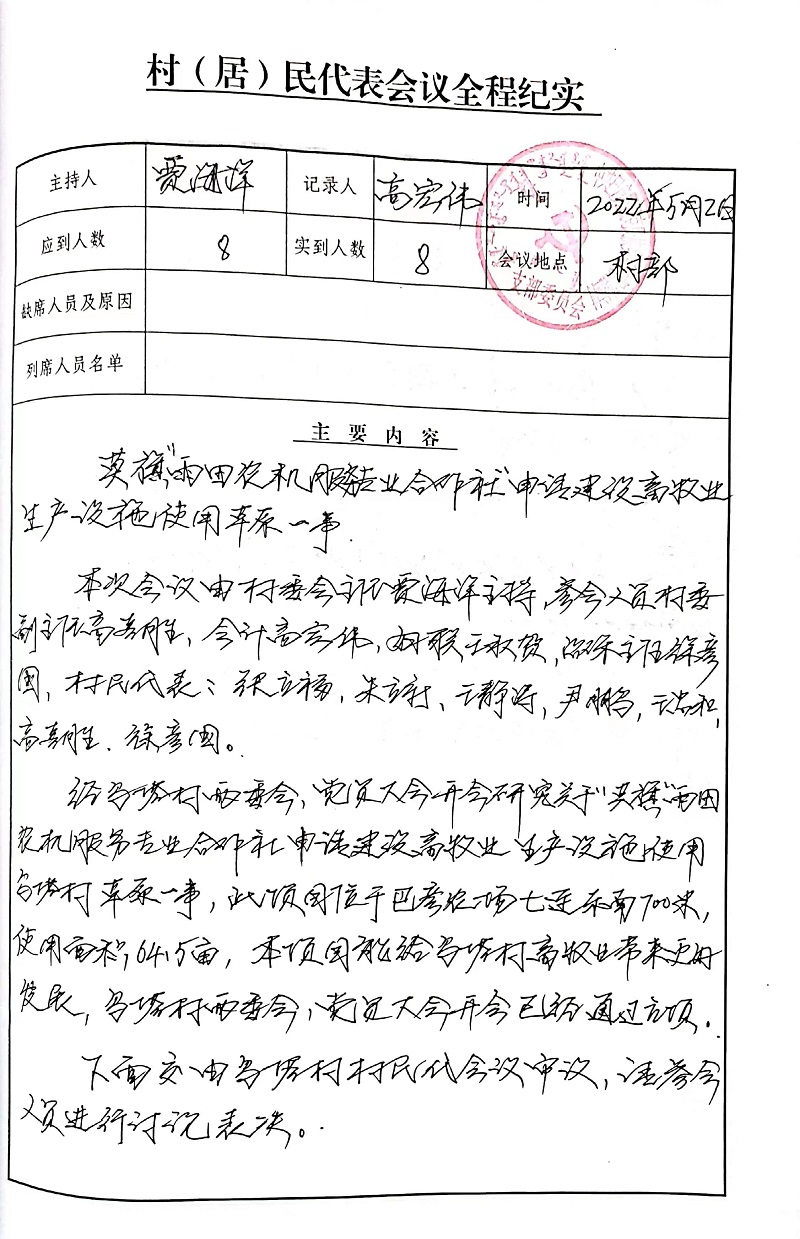 村（居）民代表会议全程纪实
主持人 贾海洋 记录人 高宏伟 时间 2022年5月2日
应到人数 8 实到人数 8 会议地点 村部
缺席人员及原因
列席人员名单
支部委员会
主要内容
莫旗"雨田农机服务专业合作社"申请建设畜牧业
生产设施使用草原一事
本次会议由村委会主任贾海洋主持，参会人员村委
副主任高喜胜，会计高宏伟，妇联王秋贺，治保主任徐彦
国，村民代表：张立杨，朱立新、王静涛，尹鹏飞，
高喜胜、徐彦国。
经乌塔村两委会，党员大会开会研究关于"莫旗"雨田
农机服务专业合作社申请建设畜牧业生产设施使用
乌塔村草原一事，此项目位于巴彦农场七连东南700米，
使用面积，64.5亩，本项目能给乌塔村畜牧业带来更好
发展，乌塔村两委会，党员大会开会已经通过立项。
下面交由乌塔村村民代会议审议，请参会
人员进行讨论表决。